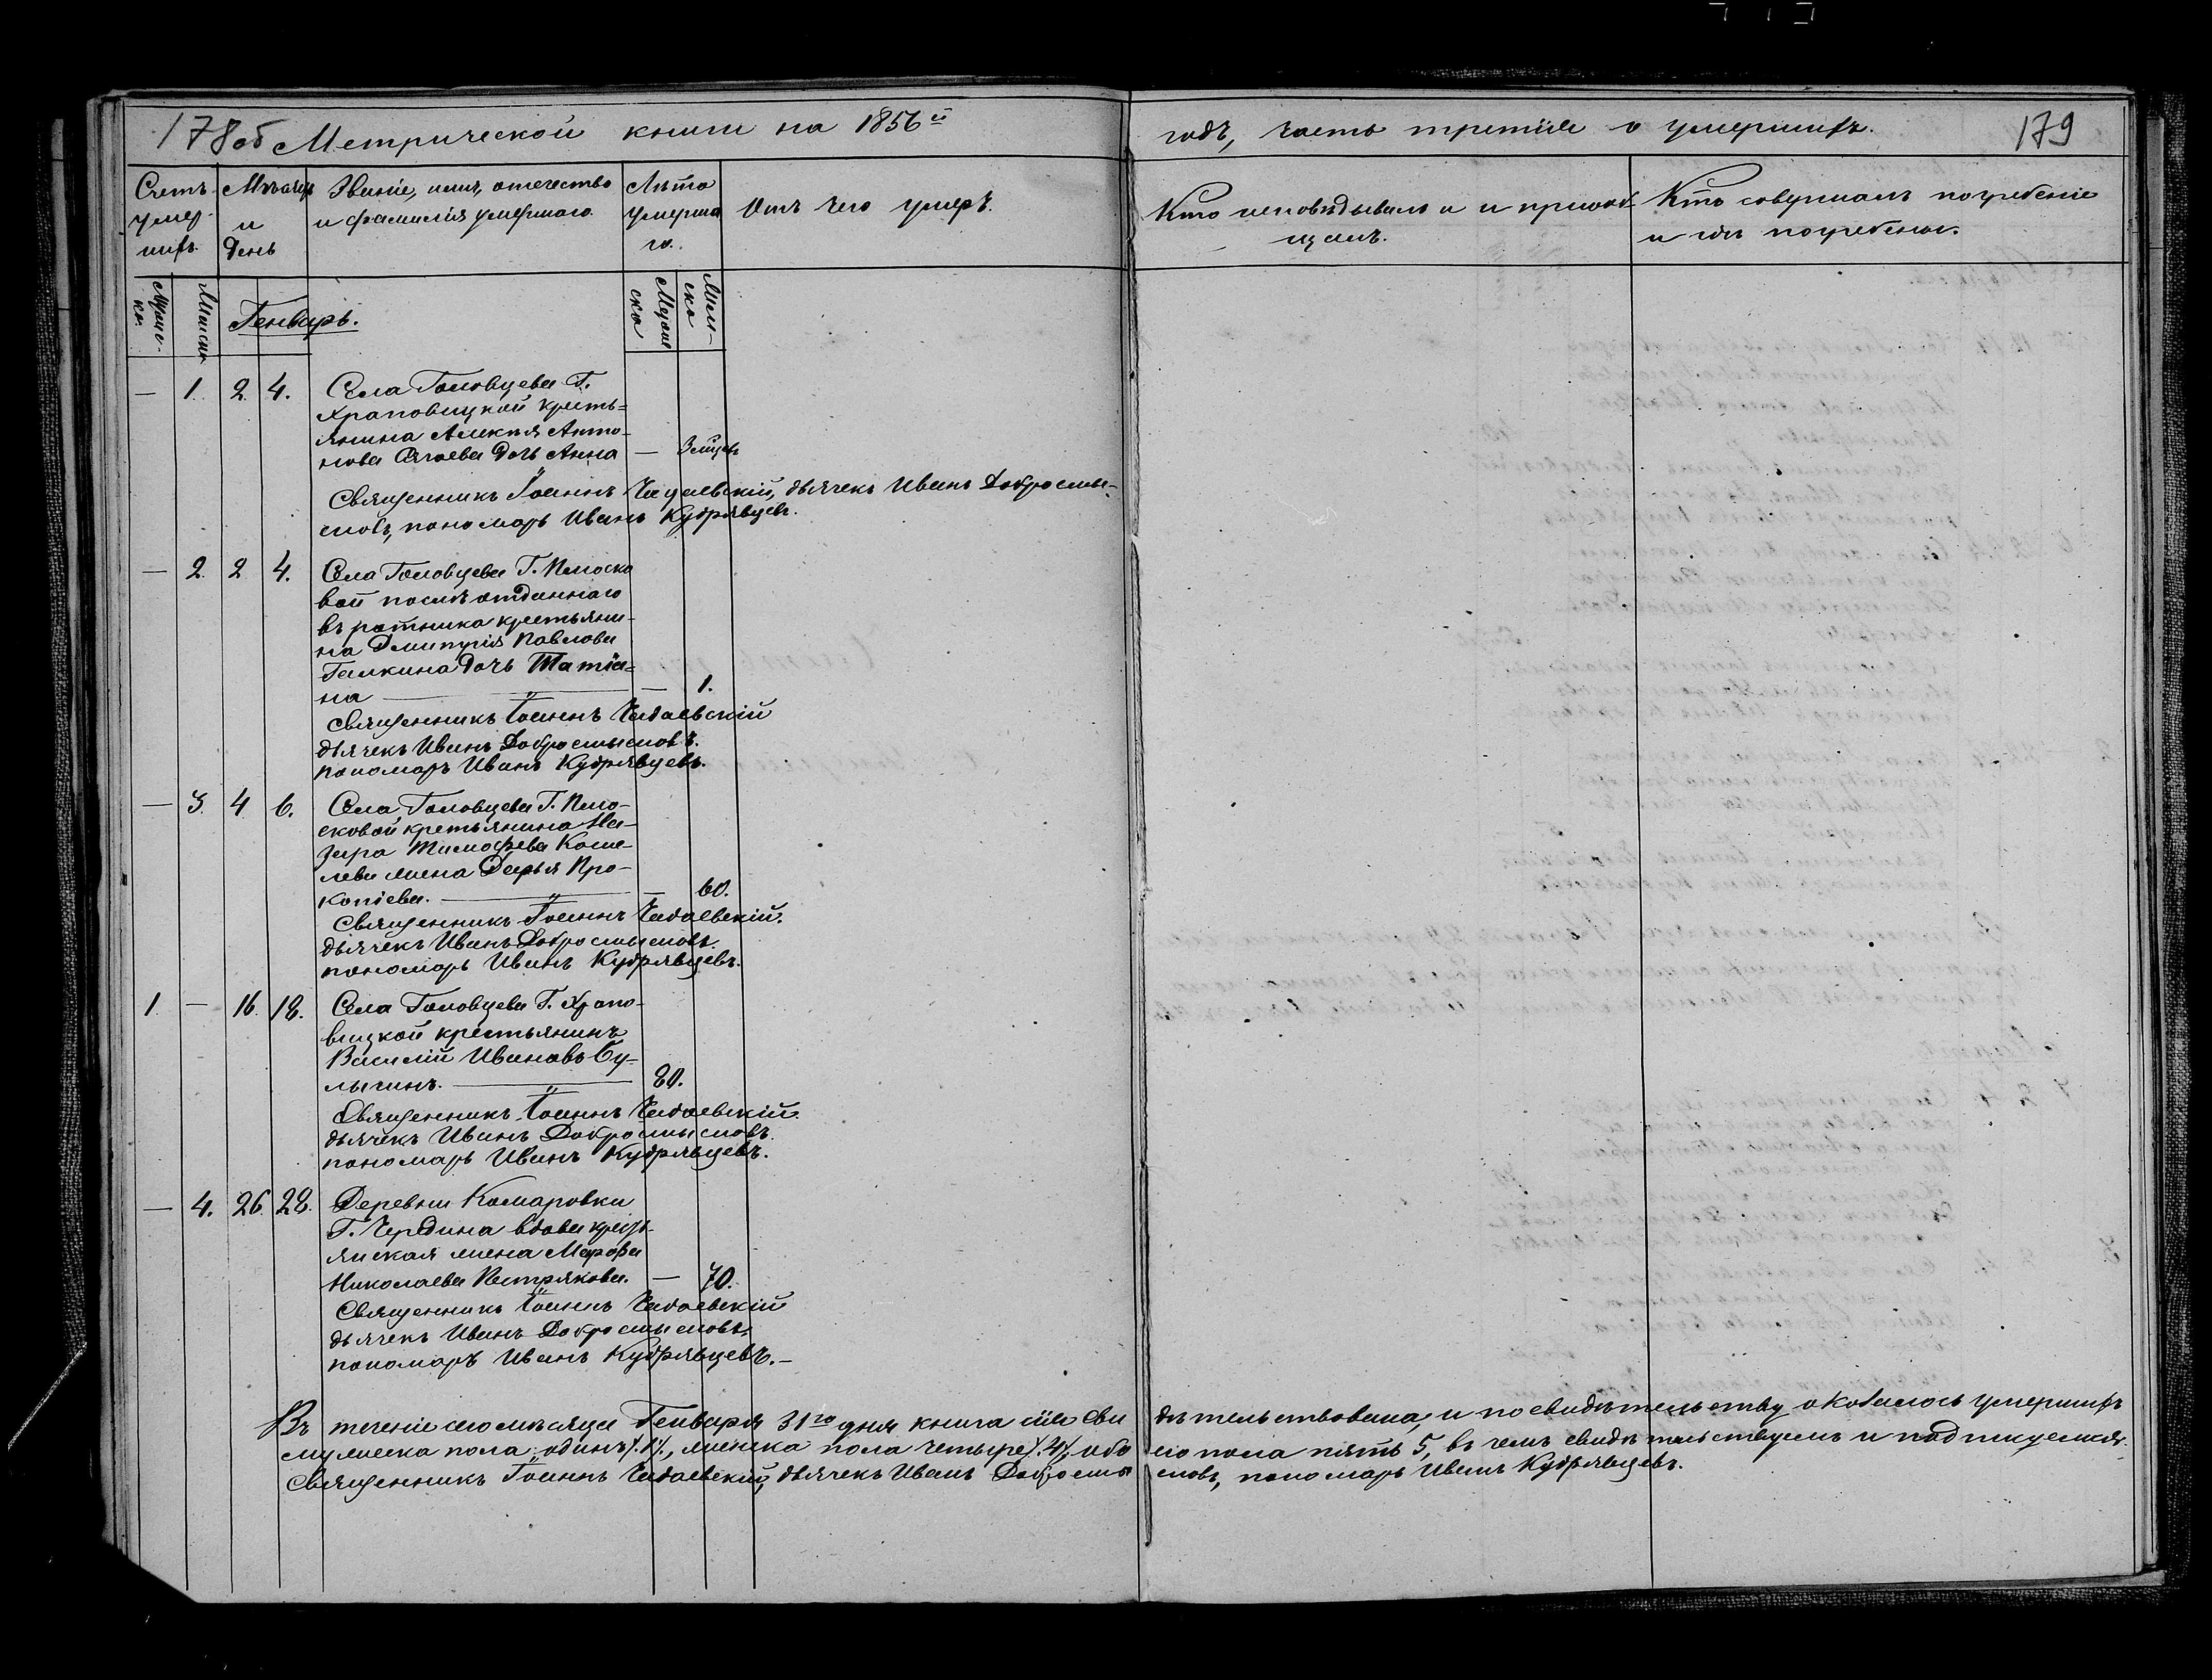 178 об Метрической книги на 1856й годъ, часть третія о умершихъ. 179
Счетъ умер- шихъ.
Мѣсяцъ и день
Званіе, имя, отечество и фамилія умершаго.
Лѣта умерша го.
Отъ чего умеръ.
Кто исповѣдывалъ и и пріоб- щалъ.
Кто совершалъ погребеніе и гдѣ погребены.
Генварь.
— 1. 2. 4. Села Головцева Г.
Храповицкой кресть=
янина Алексѣя Анто-
нова дочь Анна —
Священникъ Іоаннъ Чадаевскій, дьячекъ Иванъ Добросмы-
словъ, пономарь Иванъ Кудрявцевъ.
— 2. 2 4. Села Головцева Г. Плоско
вой послѣ отданнаго
въ ратника крестьяни-
на Дмитрія Павлова
Галкина дочь Татіа=
на — — 1.
Священникъ Іоаннъ Чадаевскій
дьячекъ Иванъ Добросмысловъ.
пономарь Иванъ Кудрявцевъ.
— 3. 4 6. Села Головцева Г. Пло-
сковой крестьянина На-
зара Тимофева Коше-
лева жена Дарья Про-
копіева. — — 60.
Священникъ Іоаннъ Чадаевскій.
дьячекъ Иванъ Добросмысловъ.
пономарь Иванъ Кудрявцевъ.
1. — 16. 18. Села Головцева Г. Храпо-
вицкой крестьянинъ
Василій Ивановъ Бу-
лыгинъ. — 80.
Священникъ Іоаннъ Чадаевскій.
дьячекъ Иванъ Добросмысловъ.
пономарь Иванъ Кудрявцевъ.
— 4. 26. 28. Деревни Комаровки
Г. Чердина вдова кресть-
янская жена Марфа
Николаева Пестрякова. — 70.
Священникъ Іоаннъ Чадаевскій
дьячекъ Иванъ Добросмысловъ,
пономарь Иванъ Кудрявцевъ. –
Въ теченіе сего мѣсяца Генваря 31го дня книга сія сви дѣтельствована, и по свидѣтельству оказалось умершихъ
мужеска пола одинъ /.1/., женска пола четыре /.4/., обо его пола пять 5, въ чемъ свидѣтельствуемъ и подписуемся.
Священникъ Іоаннъ Чадаевскій, дьячекъ Иванъ Добросмы словъ, пономарь Иванъ Кудрявцевъ.